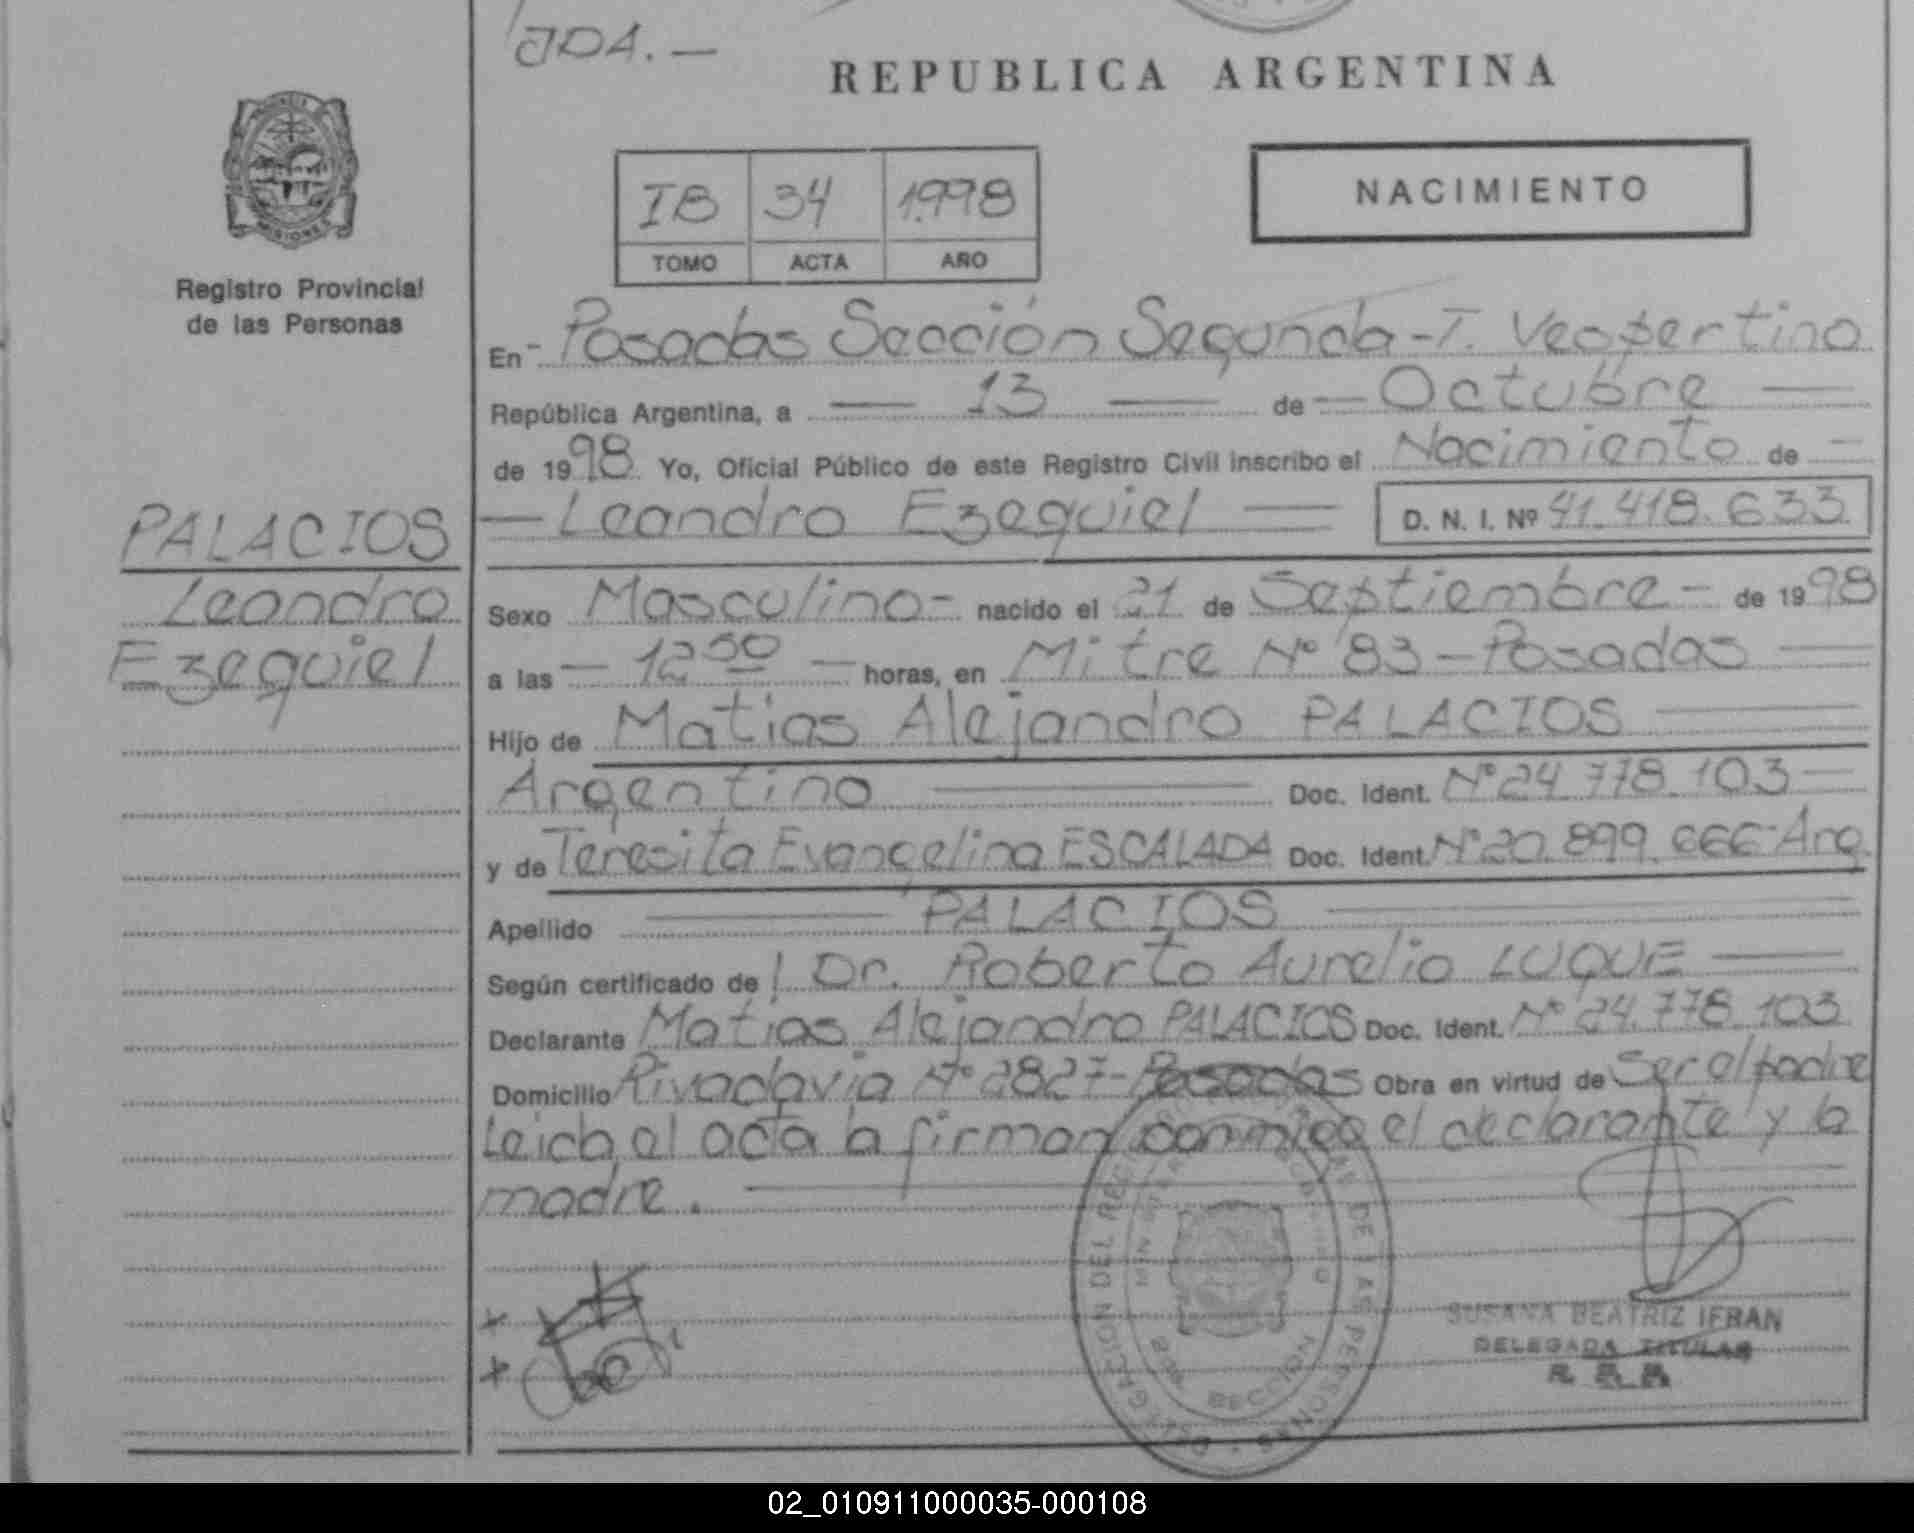 JDA.—
REPUBLICA ARGENTINA
MISIONES
IB 34 1.998
TOMO ACTA AÑO
NACIMIENTO
Registro Provincial
de las Personas
En - Posadas Sección Segunda - T. Vespertino
República Argentina, a — 13 — de — Octubre —
de 1998 Yo, Oficial Público de este Registro Civil inscribo el Nacimiento de —
— Leandro Ezequiel — D. N. I. Nº 41.418.633
PALACIOS
Leandro
Ezequiel
Sexo Masculino - nacido el 21 de Septiembre - de 1998
a las — 12 50 — horas, en Mitre Nº 83 - Posadas —
Hijo de Matias Alejandro PALACIOS —
Argentino — Doc. Ident. Nº 24.778.103 —
y de Teresita Evangelina ESCALADA Doc. Ident. Nº 20.899.666 - Arg.
Apellido — PALACIOS —
Según certificado de l Dr. Roberto Aurelio LUQUE —
Declarante Matias Alejandro PALACIOS Doc. Ident. Nº 24.778.103
Domicilio Rivadavia Nº 2827 - Posadas Obra en virtud de Ser el padre
Leida el acta la firman conmigo el declarante y la
madre. —
DELEGACION DEL REGISTRO DE LAS PERSONAS
2da. SECCION
SUSANA BEATRIZ IFRAN
DELEGADA TITULAR
02_010911000035-000108